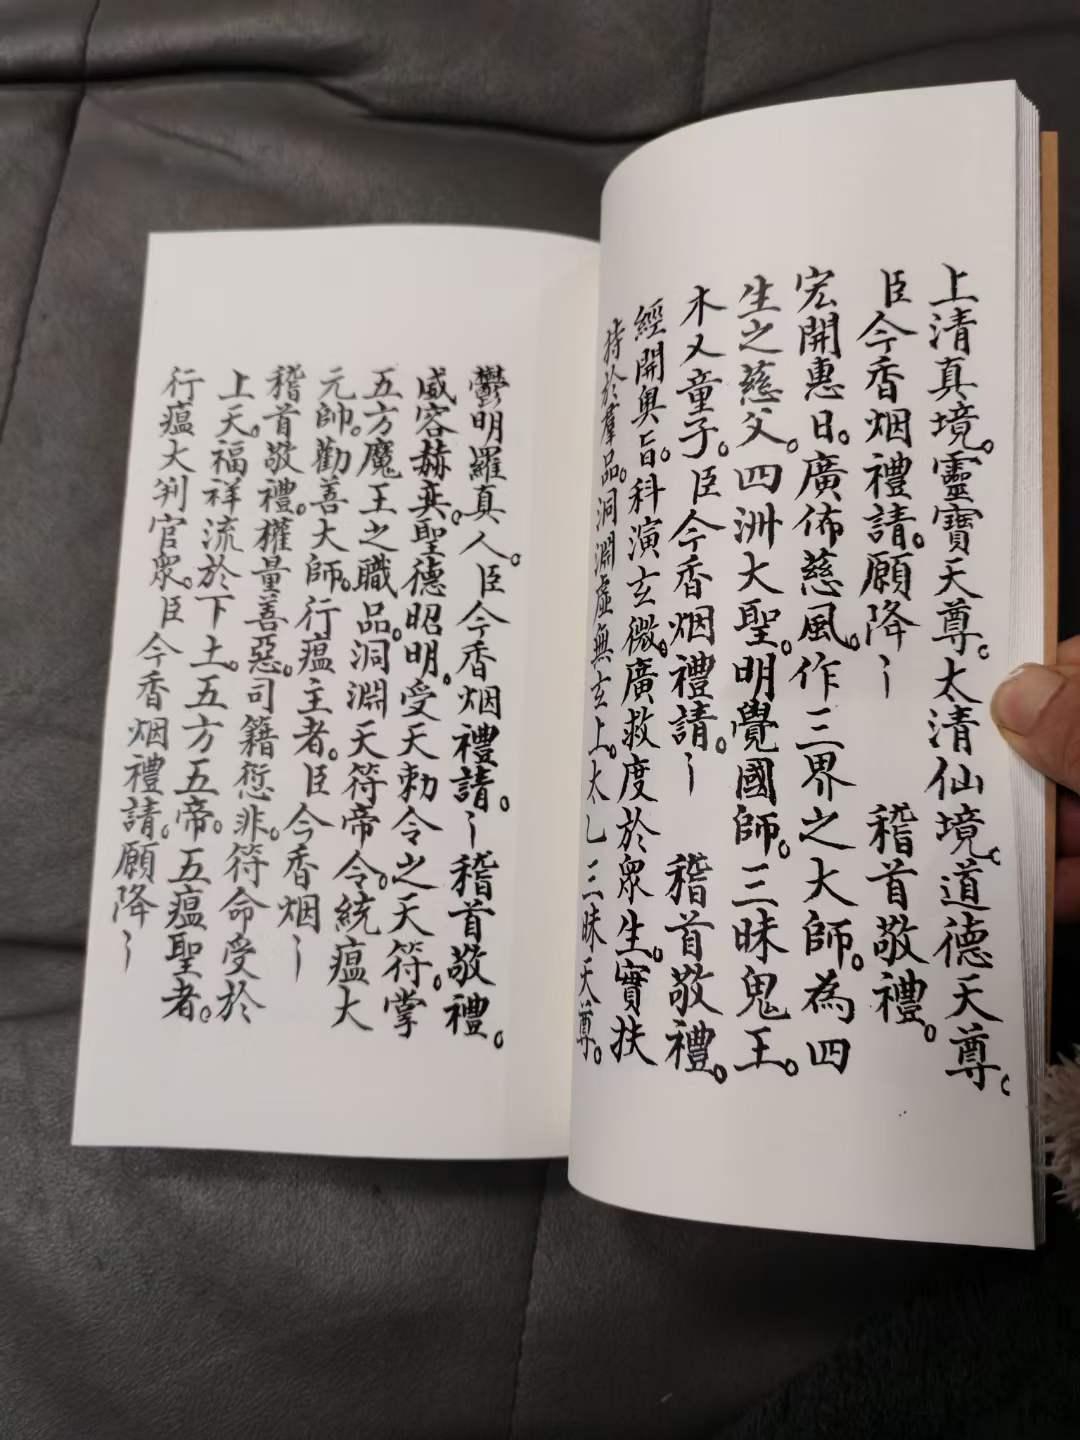 上清真境。靈寶天尊。太清仙境。道德天尊。
臣今香烟禮請。願降〻 稽首敬禮。
宏開惠日。廣佈慈風。作三界之大師。為四
生之慈父。四洲大聖。明覺國師。三昧鬼王。
木乂童子。臣今香烟禮請。〻 稽首敬禮。
經開奥旨。科演玄微。廣救度於眾生。實扶
持於羣品。洞淵虛無玄上。太乙三昧天尊。
鬱明羅真人。臣今香烟禮請。〻稽首敬禮。
威容赫奕。聖德昭明。受天勅令之天符。掌
五方魔王之職品。洞淵天符帝令。統瘟大
元帥。勸善大師。行瘟主者。臣今香烟〻
稽首敬禮。權量善惡。司籍愆非。符命受於
上天。福祥流於下土。五方五帝。五瘟聖者。
行瘟大判官眾。臣今香烟禮請。願降〻